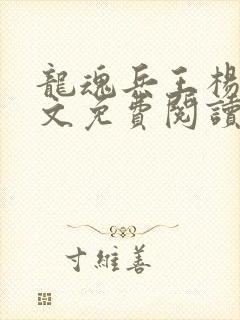 龍魂兵王楊
文免費閱讀
寸維善